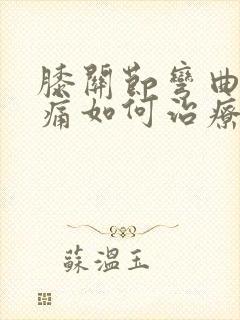 膝關節彎曲
痛如何治療
蘇溫玉